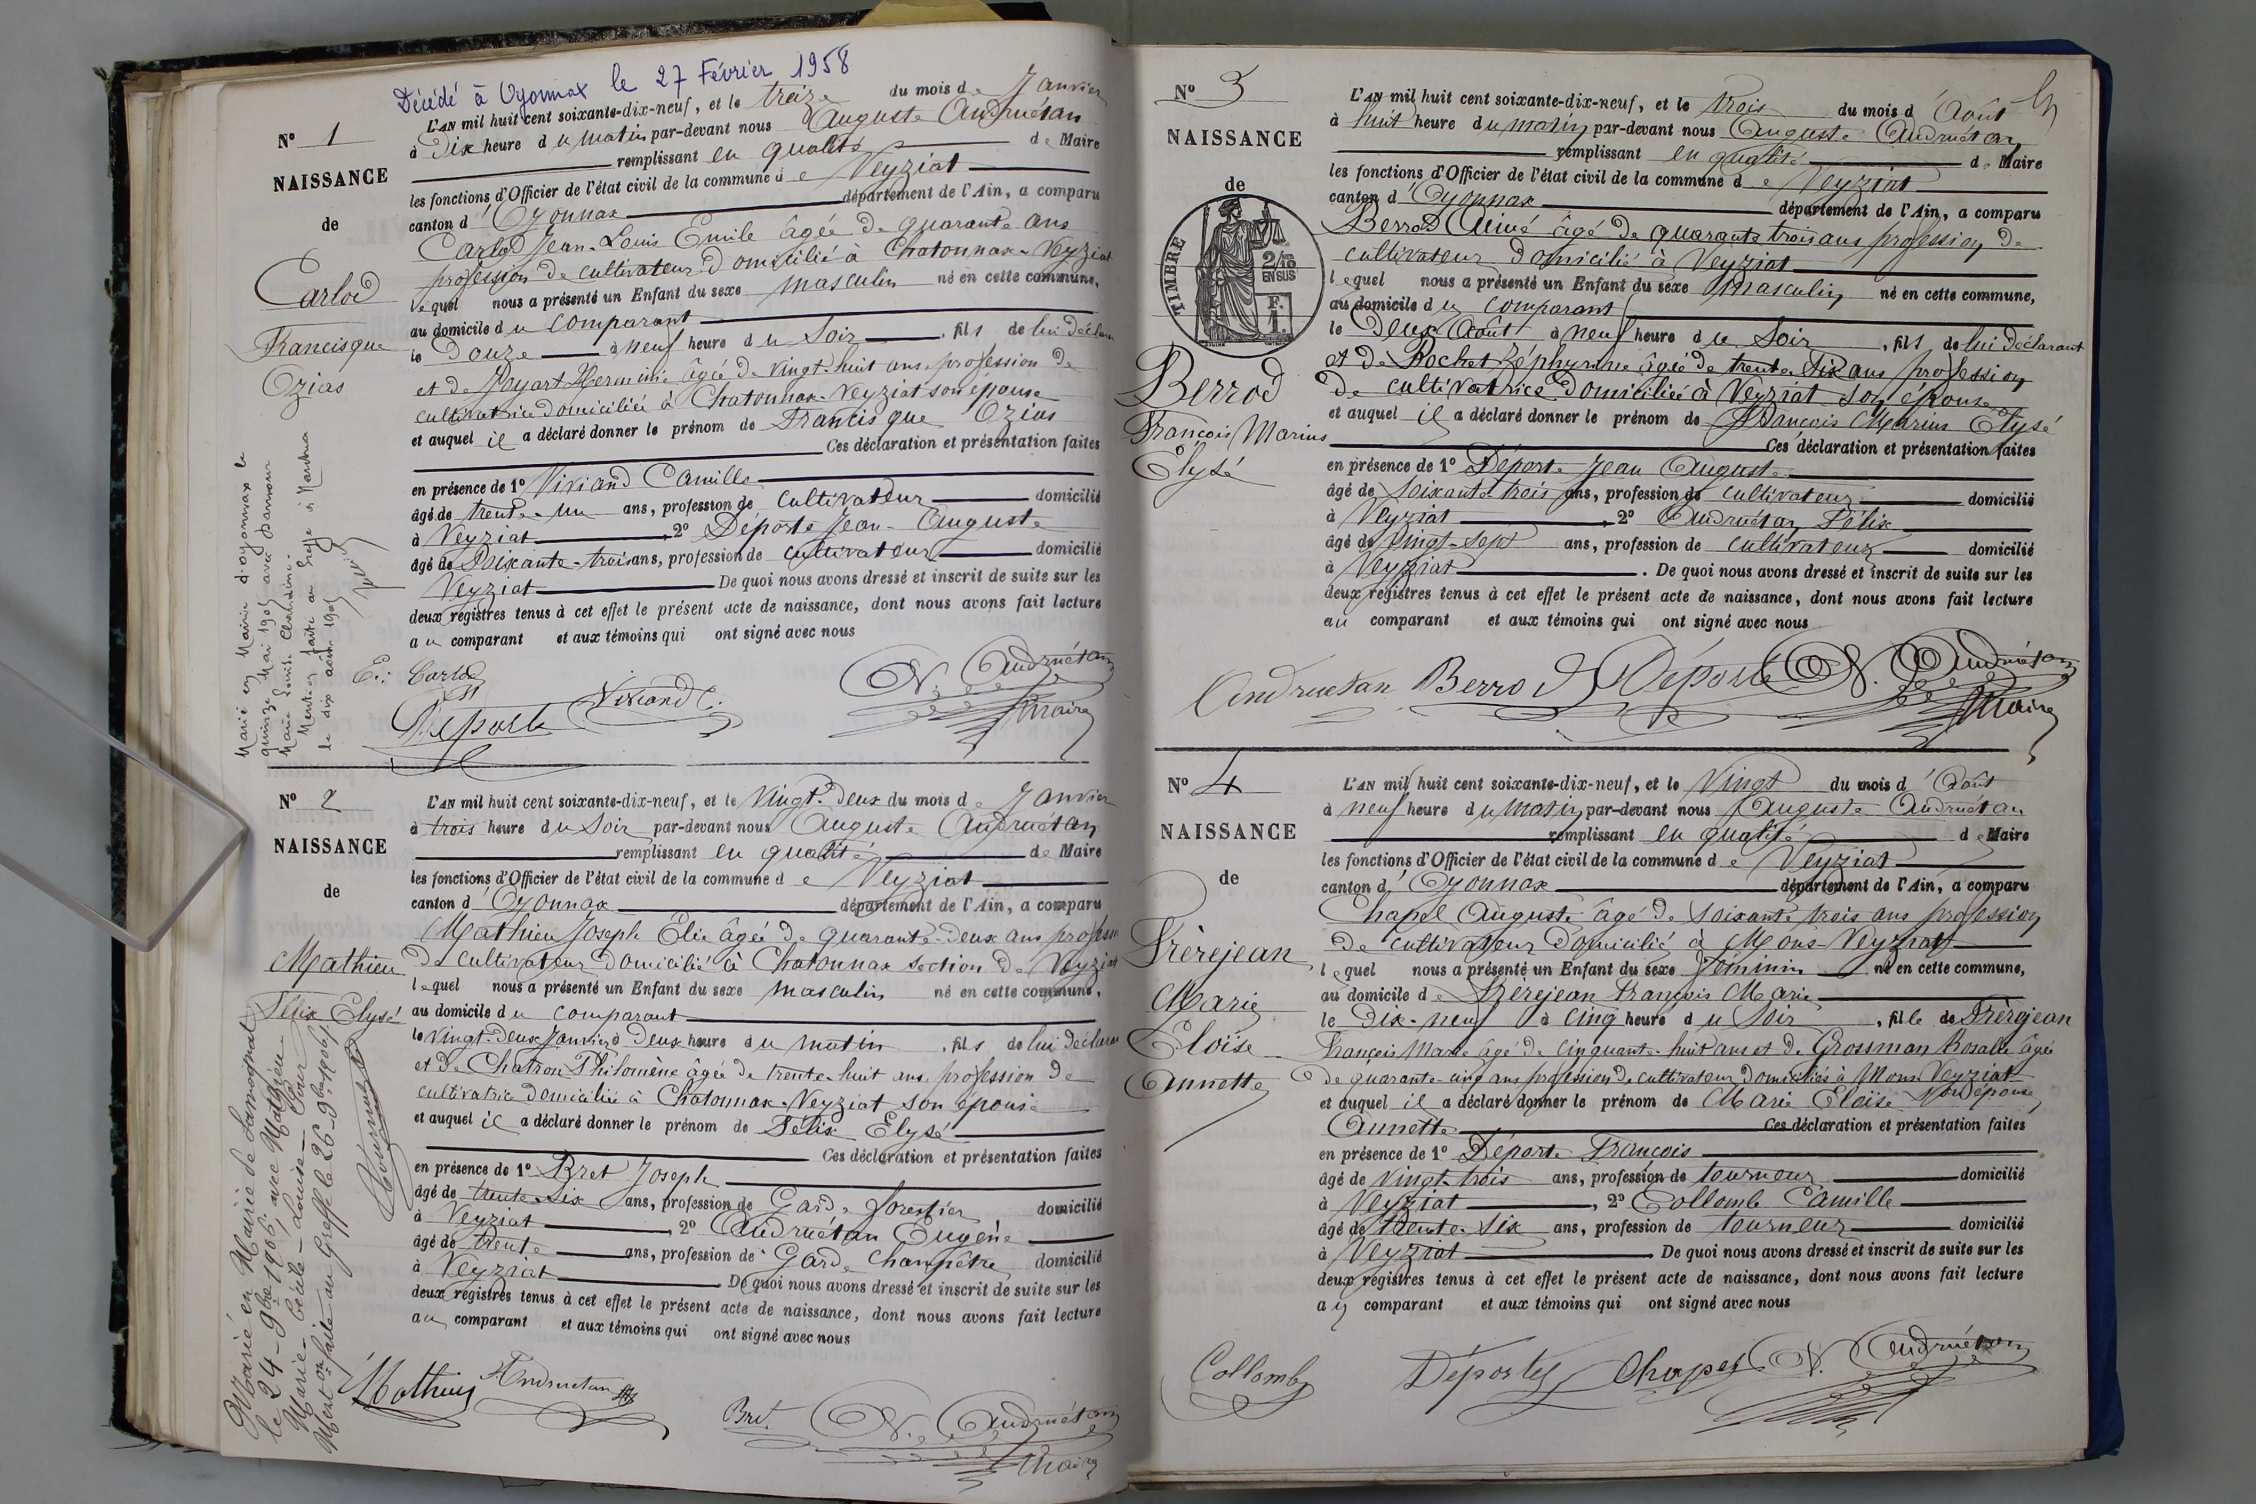 Décédé à Oyonnax le 27 Février 1958
N° 1
NAISSANCE
de
Carlod
Francisque
Ozias
L'AN mil huit cent soixante-dix-neuf, et le treize du mois de Janvier
à dix heure du matin par-devant nous Auguste Andruétan
remplissant en qualité de Maire
les fonctions d'Officier de l'état civil de la commune de Veyziat
canton d'Oyonnax département de l'Ain, a comparu
Carlod Jean-Louis Emile âgée de quarante ans
profession de cultivateur domicilié à Chatonnax-Veyziat
lequel nous a présenté un Enfant du sexe masculin né en cette commune,
au domicile du comparant
le Douze à neuf heure du Soir, fils de lui déclarant
et de Herminie âgée de vingt-huit ans profession de
cultivatrice domiciliée à Chatonnax-Veyziat son épouse
et auquel il a déclaré donner le prénom de Francisque Ozias
Ces déclaration et présentation faites
en présence de 1° Viviand Camille
âgé de trente-un ans, profession de cultivateur domicilié
à Veyziat, 2° Déporte Jean-Auguste
âgé de Soixante-trois ans, profession de cultivateur domicilié
Veyziat De quoi nous avons dressé et inscrit de suite sur les
deux registres tenus à cet effet le présent acte de naissance, dont nous avons fait lecture
au comparant et aux témoins qui ont signé avec nous
E. Carlod
Déporte Viviand C. N. Andruétan
Maire
Marié en Mairie d'Oyonnax le
quinze Mai 1905 avec
Marie Louise
Mention faite au Greffe à Nantua
le dix août 1905
N° 2
NAISSANCE
de
Mathieu
Félix Elysé
L'AN mil huit cent soixante-dix-neuf, et le Vingt-deux du mois de Janvier
à trois heure du Soir par-devant nous Auguste Andruétan
remplissant en qualité de Maire
les fonctions d'Officier de l'état civil de la commune de Veyziat
canton d'Oyonnax département de l'Ain, a comparu
Mathieu Joseph Élie âgée de quarante-deux ans profession
De cultivateur domicilié à Chatonnax section de Veyziat
lequel nous a présenté un Enfant du sexe masculin né en cette commune,
au domicile du comparant
le vingt-deux Janvier à deux heure du matin, fils de lui déclarant
et de Chatron Philomène âgée de trente-huit ans, profession de
cultivatrice domiciliée à Chatonnax-Veyziat son épouse
et auquel il a déclaré donner le prénom de Félix Elysé
Ces déclaration et présentation faites
en présence de 1° Bret Joseph
âgé de trente-six ans, profession de Garde forestier domicilié
à Veyziat 2° Andruétan Eugène
âgé de trente ans, profession de Garde Champêtre domicilié
à Veyziat De quoi nous avons dressé et inscrit de suite sur les
deux registres tenus à cet effet le présent acte de naissance, dont nous avons fait lecture
au comparant et aux témoins qui ont signé avec nous
Mathieu Andruetan
Bret N. Andruétan
Maire
Marié en Mairie de Samognat
le 24-9bre 1906, avec Mathieu
Marie-Cécile-Louise-
Ment on faite au Greffe le 26-9bre 1906
N° 3
NAISSANCE
de
TIMBRE
2/10
EN SUS
F.
1.
Berrod
François Marius
Elysé
L'AN mil huit cent soixante-dix-neuf, et le trois du mois d'Août
à huit heure du matin par-devant nous Auguste Andruétan
remplissant en qualité de Maire
les fonctions d'Officier de l'état civil de la commune de Veyziat
canton d'Oyonnax département de l'Ain, a comparu
Berrod Aimé âgé de quarante trois ans profession de
cultivateur domicilié à Veyziat
lequel nous a présenté un Enfant du sexe masculin né en cette commune,
au domicile du comparant
le Deux Août à neuf heure du Soir, fils de lui déclarant
et de Rochet Zéphyrine âgée de trente six ans profession
de cultivatrice domiciliée à Veyziat son épouse
et auquel il a déclaré donner le prénom de François Marius Elysé
Ces déclaration et présentation faites
en présence de 1° Déporte Jean Auguste
âgé de soixante-trois ans, profession de cultivateur domicilié
à Veyziat, 2° Andruétan Félix
âgé de vingt-sept ans, profession de cultivateur domicilié
à Veyziat. De quoi nous avons dressé et inscrit de suite sur les
deux registres tenus à cet effet le présent acte de naissance, dont nous avons fait lecture
au comparant et aux témoins qui ont signé avec nous
Andruetan Berrod Déporte N. Andruétan
Maire
N° 4
NAISSANCE
de
Frèrejean
Marie
Eloïse
Annette
L'AN mil huit cent soixante-dix-neuf, et le Vingt du mois d'Août
à neuf heure du matin par-devant nous Auguste Andruétan
remplissant en qualité de Maire
les fonctions d'Officier de l'état civil de la commune de Veyziat
canton d'Oyonnax département de l'Ain, a comparu
Chapel Auguste âgé de soixante trois ans profession
de cultivateur domicilié à Mons-Veyziat
lequel nous a présenté un Enfant du sexe féminin né en cette commune,
au domicile de Frèrejean François Marie
le Dix-neuf à cinq heure du Soir, fille de Frèrejean
François Marie âgé de cinquante-huit ans et de Grosman Rosalie âgée
de quarante-cinq ans profession de cultivateur domiciliés à Mons Veyziat
et auquel il a déclaré donner le prénom de Marie Eloïse son épouse
Annette Ces déclaration et présentation faites
en présence de 1° Déporte François
âgé de vingt-trois ans, profession de tourneur domicilié
à Veyziat, 2° Collomb Camille
âgé de trente-six ans, profession de tourneur domicilié
à Veyziat De quoi nous avons dressé et inscrit de suite sur les
deux registres tenus à cet effet le présent acte de naissance, dont nous avons fait lecture
au comparant et aux témoins qui ont signé avec nous
Collomb Déporte Chapel N. Andruétan